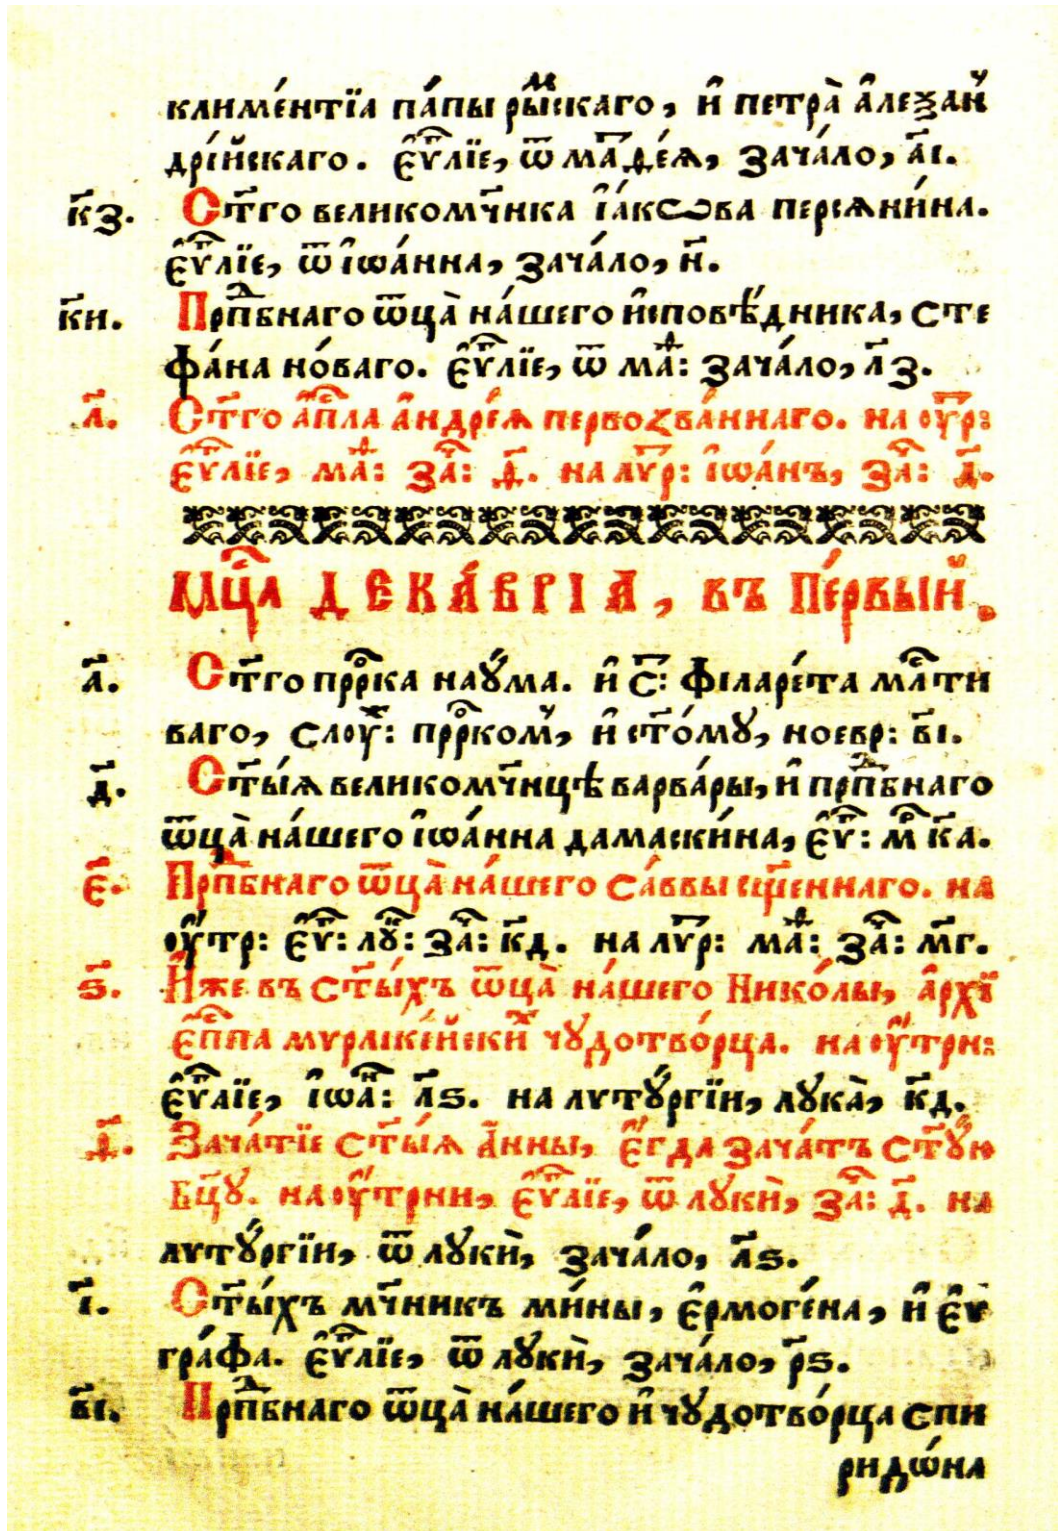 климе́нтїа па́пы ры́мскаго, и҆ петра̀ а҆леѯан
дрі́йскаго. є҆ѵⷢ҇лїе, ѿ маⷴ҇ѳе́ѧ, зача́ло, а҃і.
к҃з. Ст҃го великомч҃нка і҆а́кѡва персѧни́на.
є҆ѵⷢ҇лїе, ѿ і҆ѡа́нна, зача́ло, н҃.
к҃и. Прпⷣбнаго ѿц҃а̀ на́шего и҆сповѣ́дника, сте
фа́на но́ваго. є҆ѵⷢ҇лїе, ѿ маⷴ҇: зача́ло, л҃з.
л҃. Ст҃го а҆пⷭ҇ла а҆ндре́ѧ первоꙁва́ннаго. на оу҆́тр:
є҆ѵⷢ҇лїе, маⷴ҇: заⷱ҇: д҃. на лѵⷮр: і҆ѡа́нъ, заⷱ҇: д҃.
Мцⷭ҇а ДЕКА́ВРІА, въ пе́рвый.
а҃. Ст҃го прⷪ҇рка наꙋ́ма. и҆ с҃: фїларе́та млⷭ҇ти
ваго, слоуⷤ: прⷪ҇ркомꙋ, и҆ ст҃о́мꙋ, ноевр: в҃і.
д҃. Ст҃ы́ѧ великомч҃нцѣ варва́ры, и҆ прпⷣбнаго
ѿц҃а̀ на́шего і҆ѡа́нна дамаски́на, є҆ѵⷢ҇: мⷬ҇ к҃а.
є҃. Прпⷣбнаго ѿц҃а̀ на́шего са́ввы сщ҃еннаго. на
оу҆́тр: є҆ѵⷢ҇: лꙋⷦ҇: заⷱ҇: к҃д. на лѵⷮр: маⷴ҇: заⷱ҇: м҃г.
ѕ҃. И҆́же въ ст҃ы́хъ ѿц҃а̀ на́шего Нико́лы, а҆рхї
є҆пⷭ҇па мѵрлїке́йскиⷯ чꙋдотво́рца. на оу҆́трн:
є҆ѵⷢ҇лїе, і҆ѡаⷩ҇: л҃ѕ. на лѵтꙋ́ргїи, лꙋка̀, к҃д.
ѳ҃. Зача́тїе ст҃ы́ѧ а҆́нны, є҆гда̀ зача́тъ ст҃ꙋ́ю
бц҃ꙋ. на оу҆́трни, є҆ѵⷢ҇лїе, ѿ лꙋкѝ, заⷱ҇: д҃. на
лѵтꙋ́ргїи, ѿ лꙋкѝ, зача́ло, л҃ѕ.
і҃. Ст҃ы́хъ мч҃никъ ми́ны, є҆рмоге́на, и҆ є҆ѵ
гра́фа. є҆ѵⷢ҇лїе, ѿ лꙋкѝ, зача́ло, р҃ѕ.
в҃і. Прпⷣбнаго ѿц҃а̀ на́шего и҆ чꙋдотво́рца спи
ридѡ́на